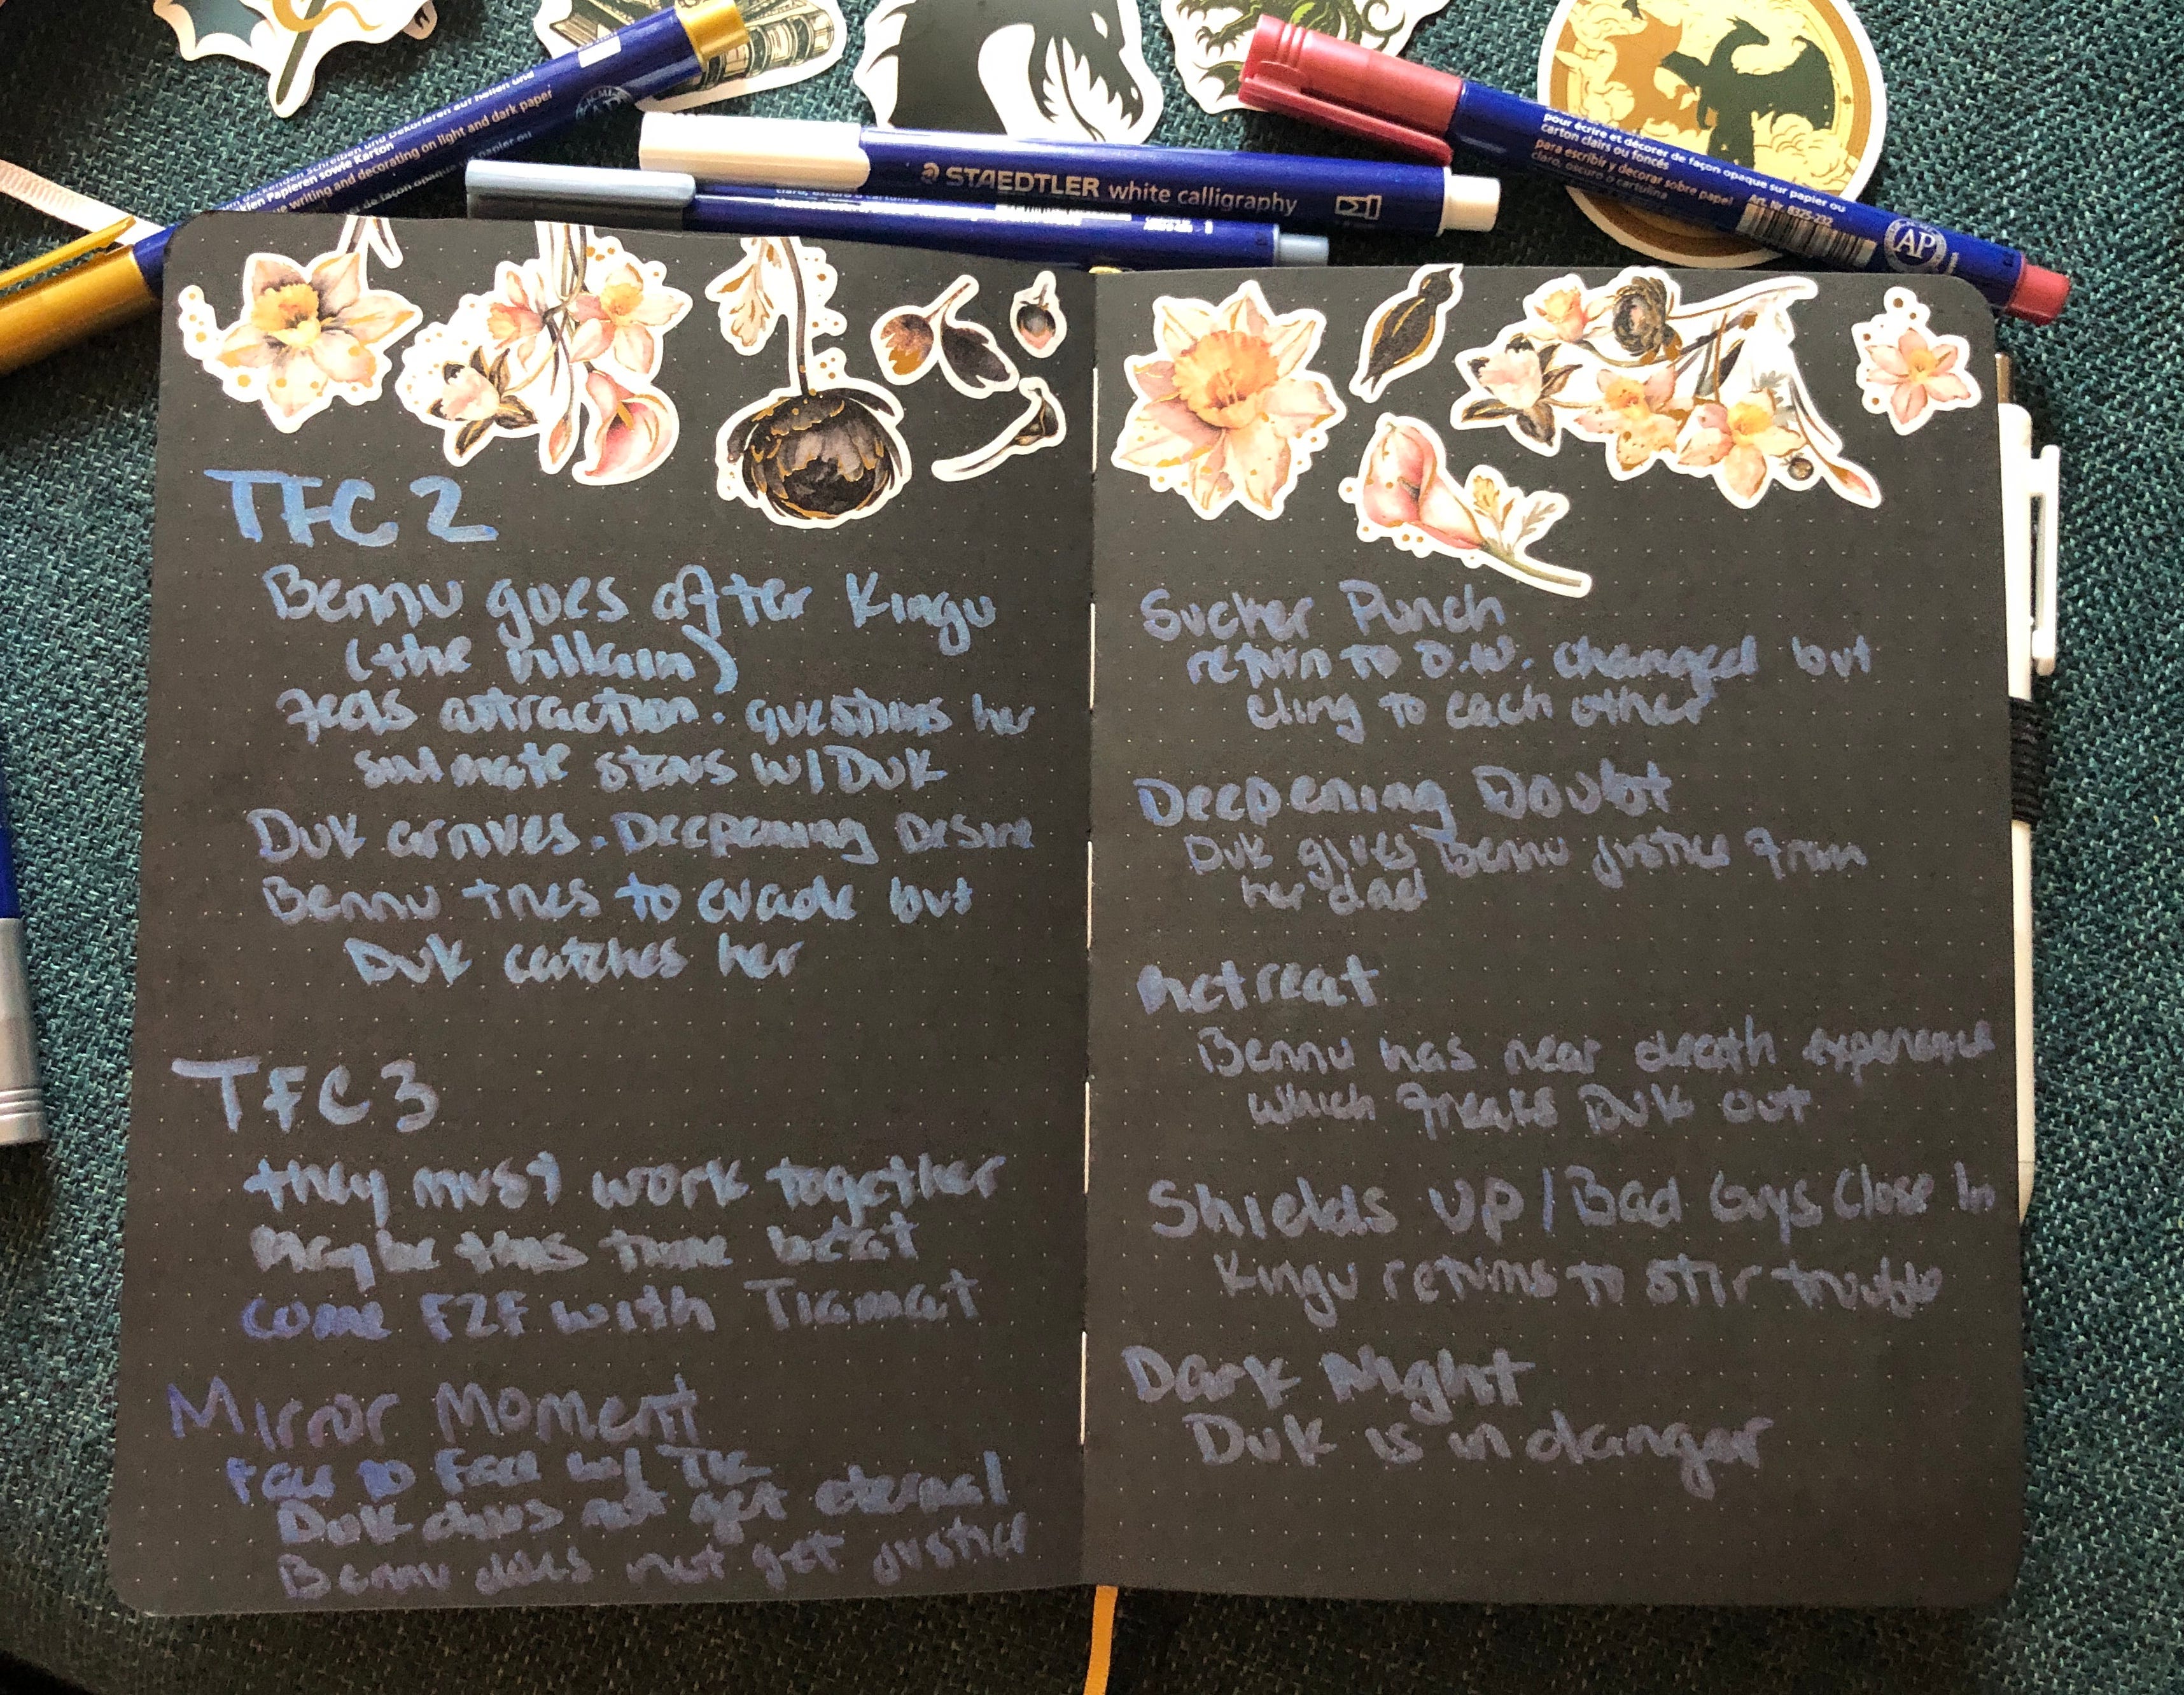 deckenden Schreiben und Dekorieren auf hellen und
Papieren sowie Karton
writing and decorating on light and dark paper
de façon opaque papier ou
STAEDTLER white calligraphy
pour écrire et décorer de façon opaque sur papier ou
carton clairs ou foncés
para escribir y decorar sobre papel
claro, oscuro o cartulina
Art. Nr. 8325-232
AP
TFC 2
Bennu goes after Kingu
(the villain)
feels attraction. questions her
soul mate stars w/ Duk
Duk arrives. Deepening Desire
Bennu tries to evade but
Duk catches her
TFC 3
they must work together
Maybe this time beat
come F2F with Tiamat
Mirror Moment
Face to Face w/
Duk does not get eternal
Bennu does not get justice
Sucker Punch
return to O.W. changed but
cling to each other
Deepening Doubt
Duk gives Bennu justice from
her dad
Retreat
Bennu has near death experience
which freaks Duk out
Shields Up / Bad Guys Close In
Kingu returns to stir trouble
Dark Night
Duk is in danger